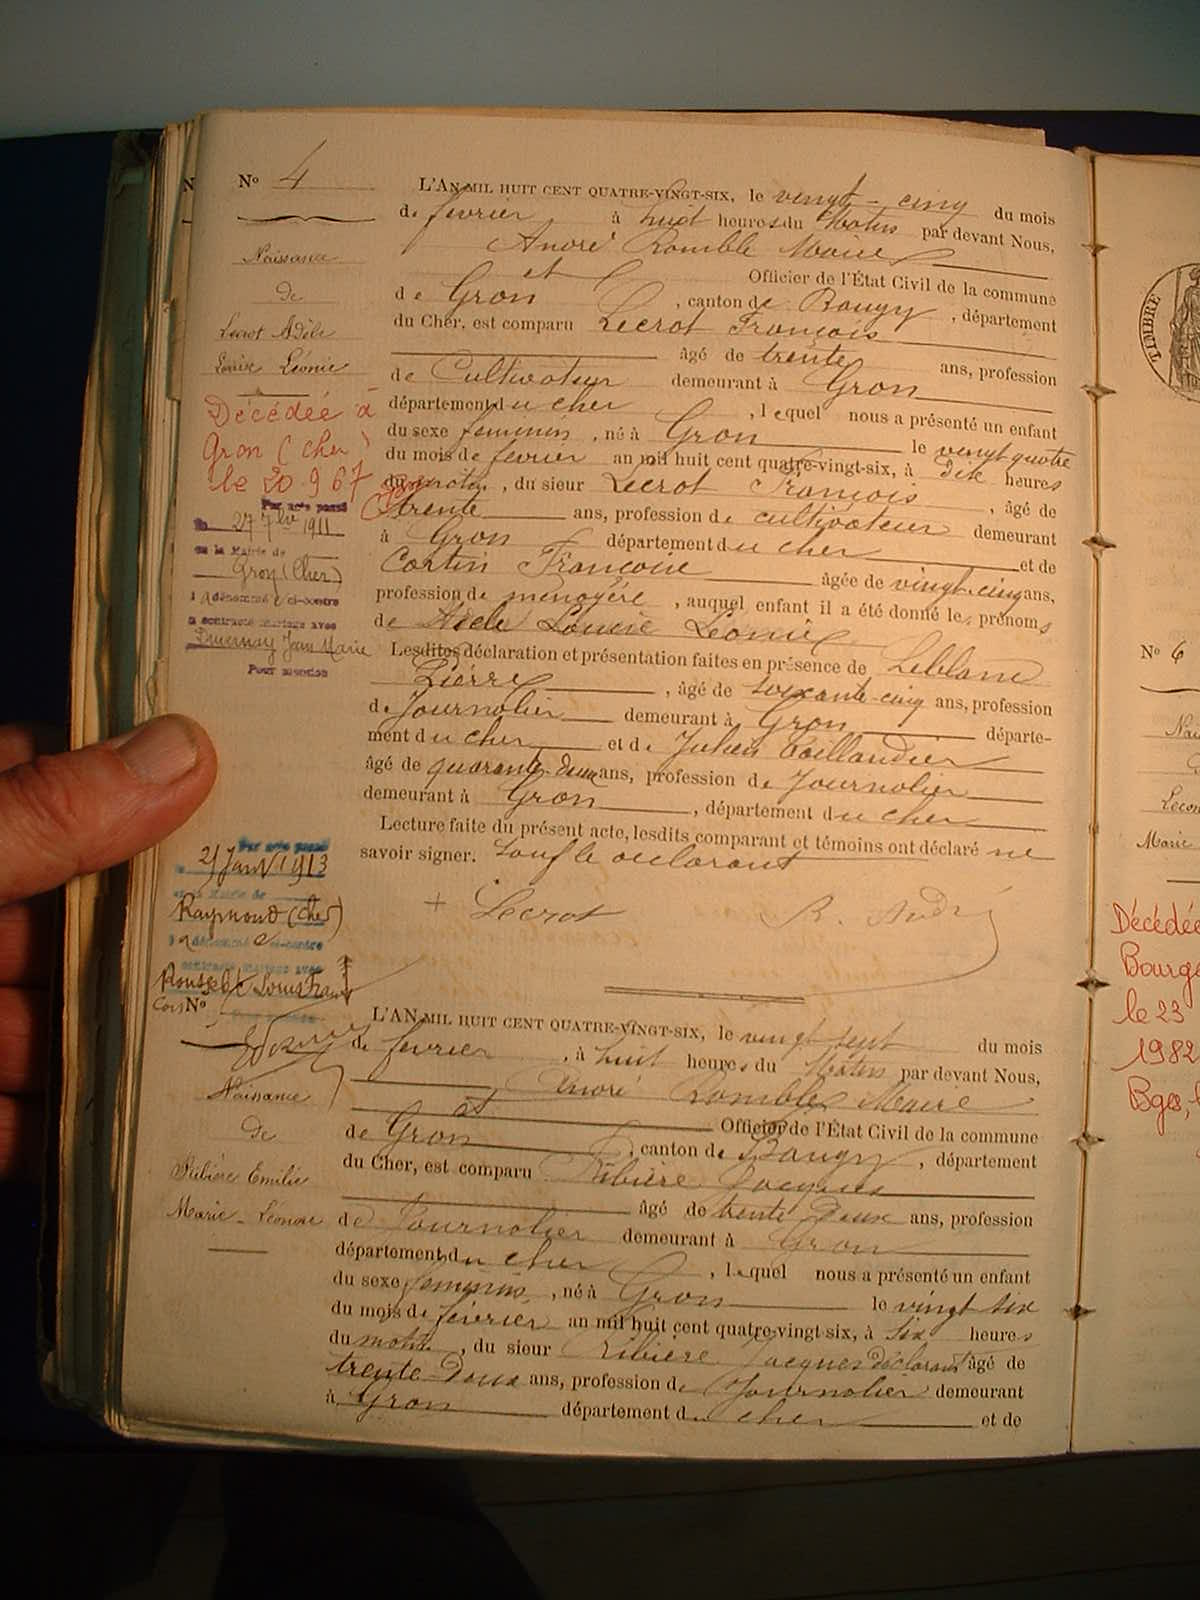 N
Nº 4
Naissance
de
Lecrot Adèle
Louise Léonie
Décédée à
Gron (cher)
le 20 9 67
Par acte passé
le 27 7bre 1911
en la Mairie de
Gron (Cher)
l a dénommé e ci-contre
a contracté mariage avec
Duvernay Jean Marie
Pour mention
L'AN MIL HUIT CENT QUATRE-VINGT-SIX, le vingt-cinq du mois
de fevrier à huit heures du Matin par devant Nous,
André Romble Maire
et Officier de l'État Civil de la commune
de Gron, canton de Baugy, département
du Cher, est comparu Lecrot François
âgé de trente ans, profession
de Cultivateur demeurant à Gron
département du cher, lequel nous a présenté un enfant
du sexe feminin, né à Gron le vingt quatre
du mois de fevrier an mil huit cent quatre-vingt-six, à dix heures
du matin, du sieur Lecrot François, âgé de
trente ans, profession de cultivateur demeurant
à Gron département du cher et de
Cortin Françoise âgée de vingt-cinq ans,
profession de menagère, auquel enfant il a été donné les prénoms
de Adele Louise Léonie
Lesdites déclaration et présentation faites en présence de Leblanc
Pierre, âgé de soixante-cinq ans, profession
de Journalier demeurant à Gron départe-
ment du cher et de Julien Taillandier
âgé de quarante-deux ans, profession de Journalier
demeurant à Gron, département du cher
Lecture faite du présent acte, lesdits comparant et témoins ont déclaré ne
savoir signer. Sauf le declarant
+ Lecrot R. André
Par acte passé
le 21 Janv 1913
en la Mairie de
Raymond (cher)
l a dénommé e ci-contre
a contracté mariage avec
Louis
Nº
Naissance
de
Ribière Emilie
Marie-Léonore
L'AN MIL HUIT CENT QUATRE-VINGT-SIX, le vingt sept du mois
de fevrier, à huit heures du Matin par devant Nous,
André Romble Maire
et Officier de l'État Civil de la commune
de Gron, canton de Baugy, département
du Cher, est comparu Ribière Jacques
âgé de trente Deux ans, profession
de Journalier demeurant à Gron
département du cher, lequel nous a présenté un enfant
du sexe feminin, né à Gron le vingt six
du mois de fevrier an mil huit cent quatre-vingt-six, à six heures
du matin, du sieur Ribière Jacques déclarant âgé de
trente-Deux ans, profession de Journalier demeurant
à Gron département du cher et de
TIMBRE
Nº 6
Marie
Décédée
Bourge
le 23
1982
Bges, l